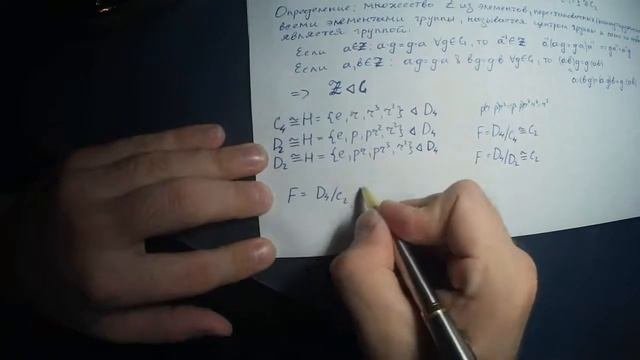 Определение: множество Z из элементов,
всеми элементами группы, называется центром группы и
является группой.
Если a∈Z: a·g=g·a ∀g∈G, то a⁻¹∈Z a⁻¹(a·g=g·a)a⁻¹
Если a,b∈Z: ag=ga и bg=gb ∀g∈G, то (ab)g=g(ab)
=> Z◁G
C₄≅H={e,r,r³,r²}◁D₄
D₂≅H={e,p,pr²,r²}◁D₄ F=D₄/C₄≅C₂
D₂≅H={e,pr,pr³,r²}◁D₄ F=D₄/D₂≅C₂
F= D₄/C₂